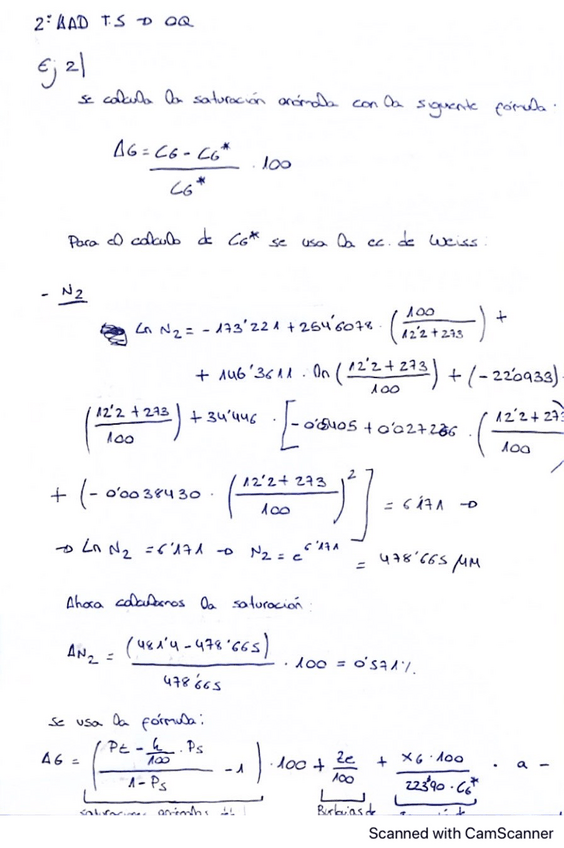 2ª BAD T.S → OQ
Ej 2|
se calcula la saturación anómala con la siguiente fórmula.
ΔG = CG - CG* / CG* · 100
Para el calculo de CG* se usa la ec. de Weiss:
- N2
Ln N2 = -173'221 + 254'6078 · (100 / 12'2 + 273) +
+ 146'3611 · ln (12'2 + 273 / 100) + (-22'0933) ·
(12'2 + 273 / 100) + 34'446 · [-0'05405 + 0'027266 · (12'2 + 273 / 100)
+ (-0'0038430 · (12'2 + 273 / 100)²] = 6'171 →
→ Ln N2 = 6'171 → N2 = e^6'171 = 478'665 μM
Ahora calculamos la saturación:
ΔN2 = (481'4 - 478'665) / 478'665 · 100 = 0'571%
se usa la fórmula:
ΔG = (Pt - h/100 · Ps / 1 - Ps - 1) · 100 + 2e / 100 + XG · 100 / 22'390 · CG* · a -
saturaciones anómalas Burbujas de
Scanned with CamScanner